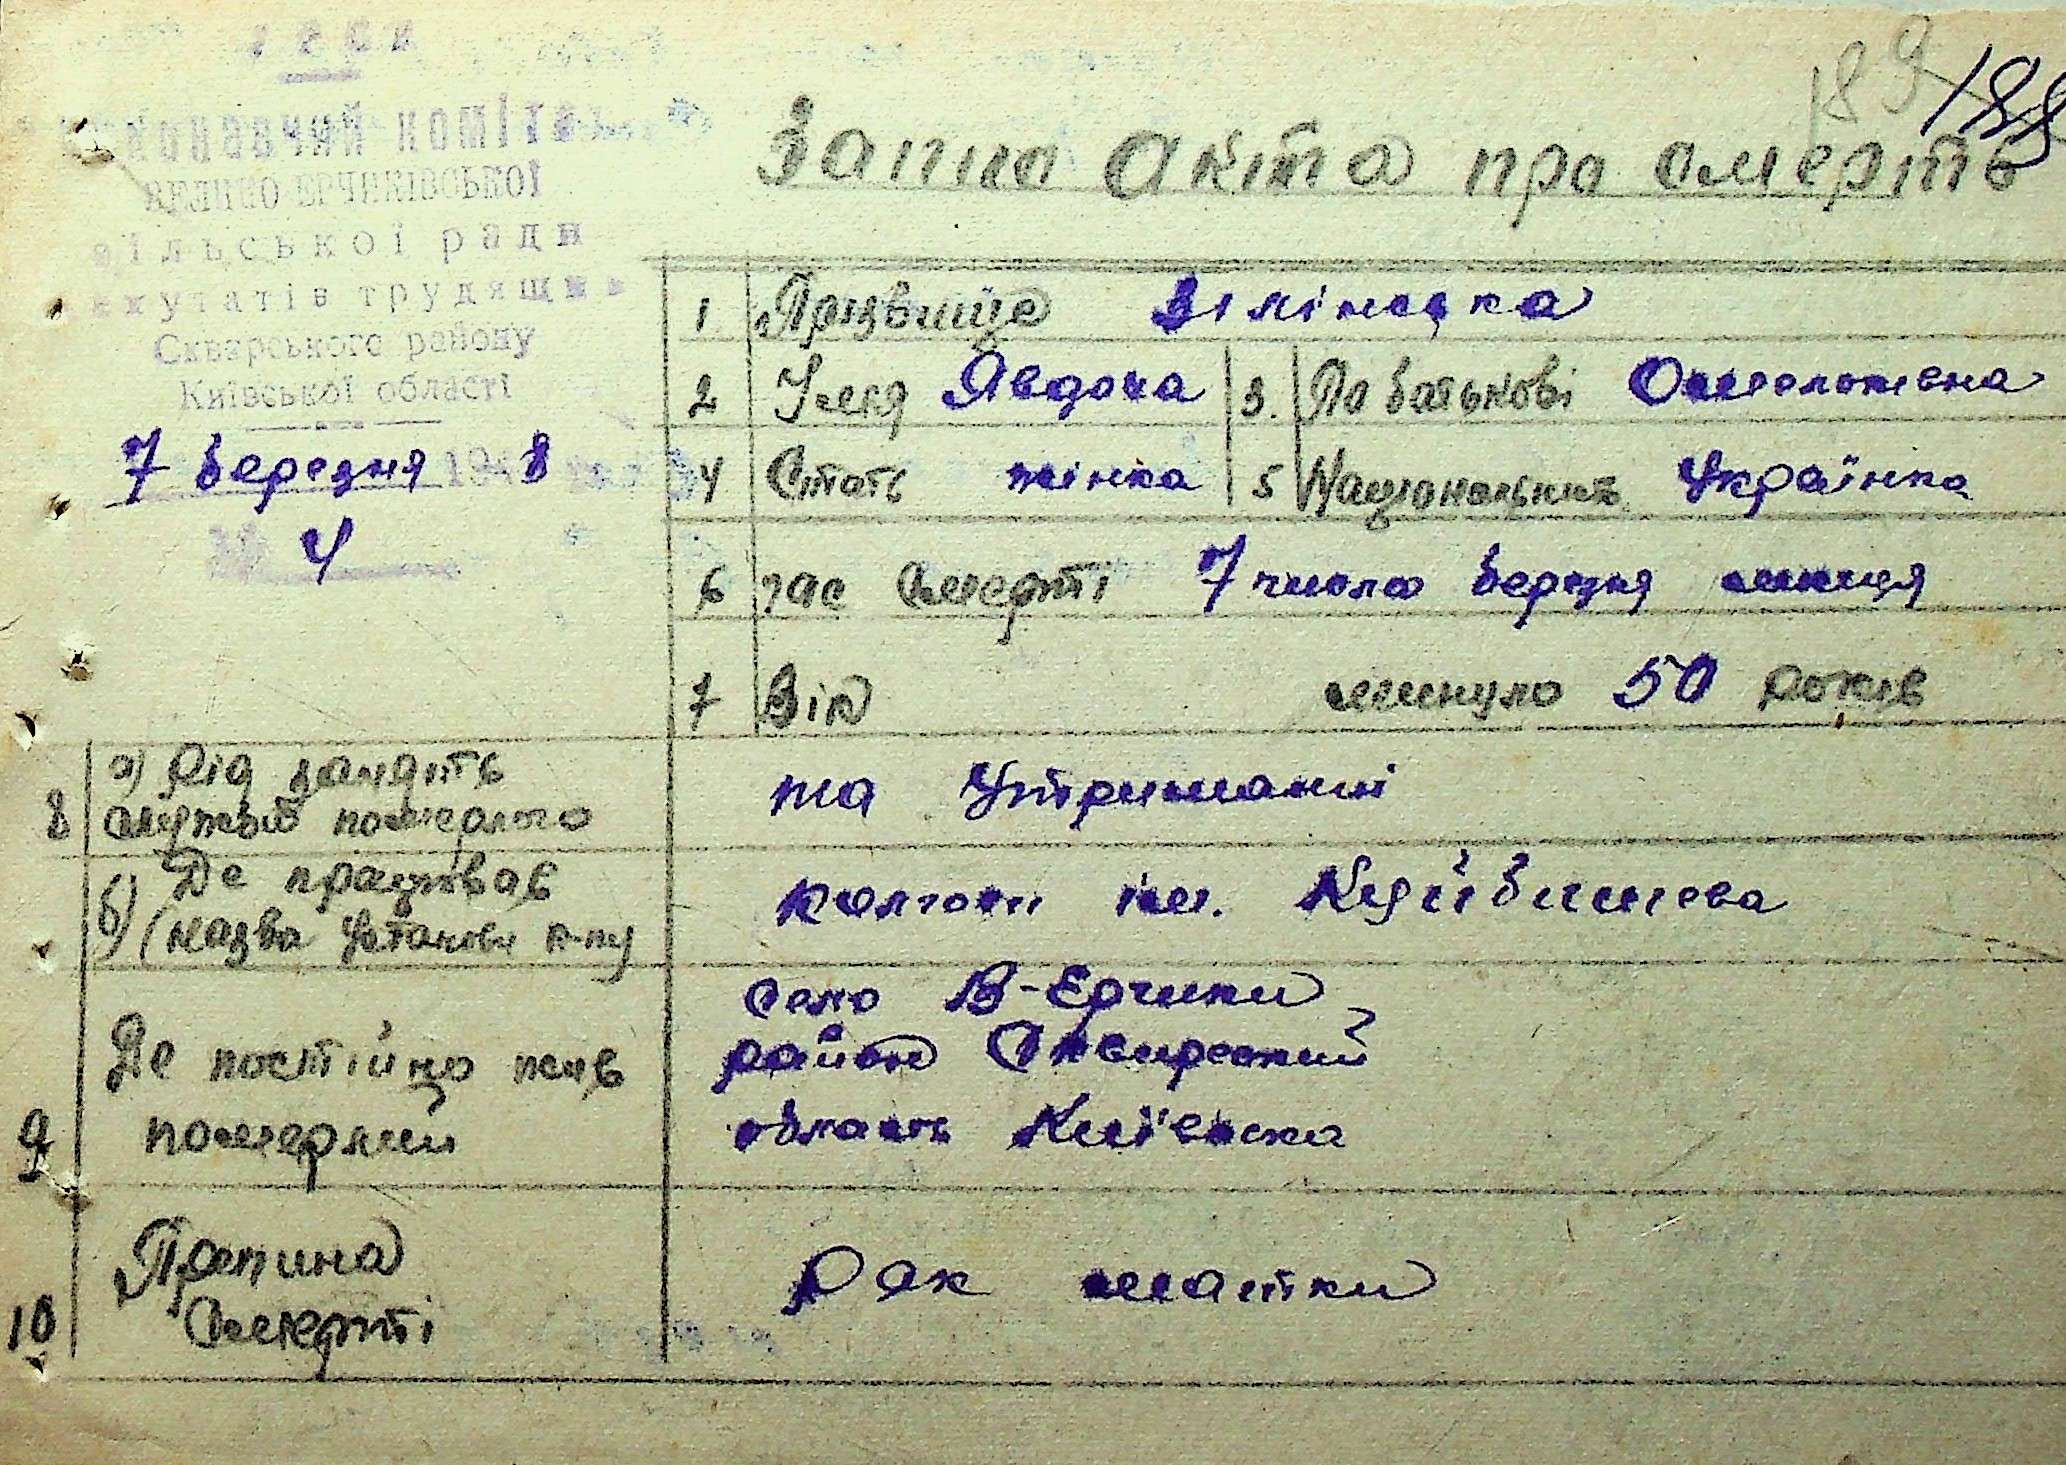 У Р С Р
ВИКОНАВЧИЙ КОМІТЕТ
ВЕЛИКО ЕРЧИКІВСЬКОЇ
сільської ради
депутатів трудящих
Сквирського району
Київської області
7 березня 194 8
4
189 188
Запис акта про смерть
1 Прізвище
2 Імя Явдоха 3. По батькові
4 Стать жінка 5 Національність Українка
6 час смерті 7 число березня місяця
7 Вік минуло 50 років
8 а) Рід занять померлого на Утриманні
б) Де працював (назва установи к-пу) колгосп ім. Куйбишева
9 Де постійно жив померлий село В-Ерчики
район Сквирський
область Київська
10 Причина Смерті Рак матки